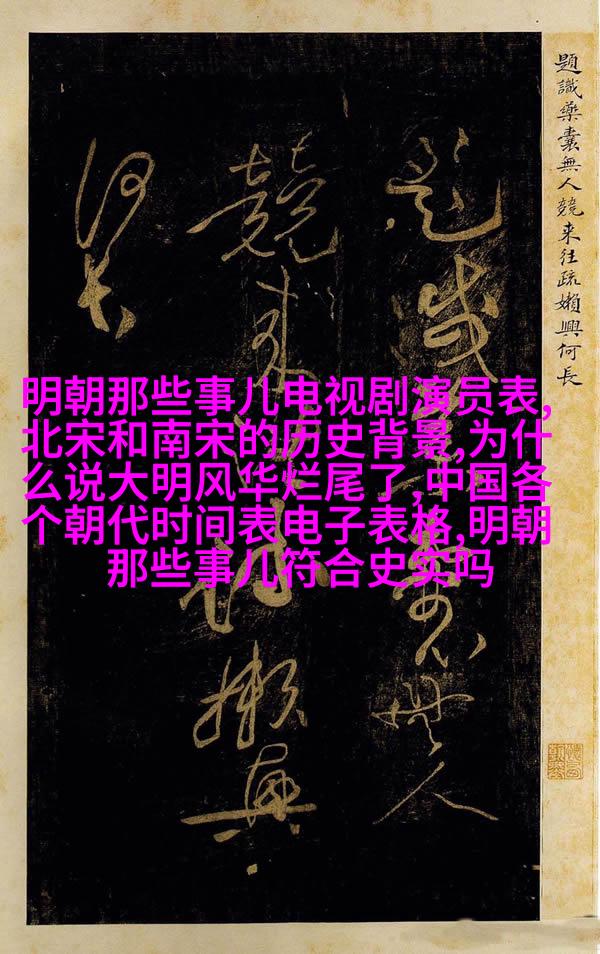 明朝那些事儿电视剧演员表,
北宋和南宋的历史背景,为什
么说大明风华烂尾了,中国各
个朝代时间表电子表格,明朝
那些事儿符合史实吗
題識藥囊無人競来往疏嬾興何長
題識囊無人
競来疏嬾興
何長